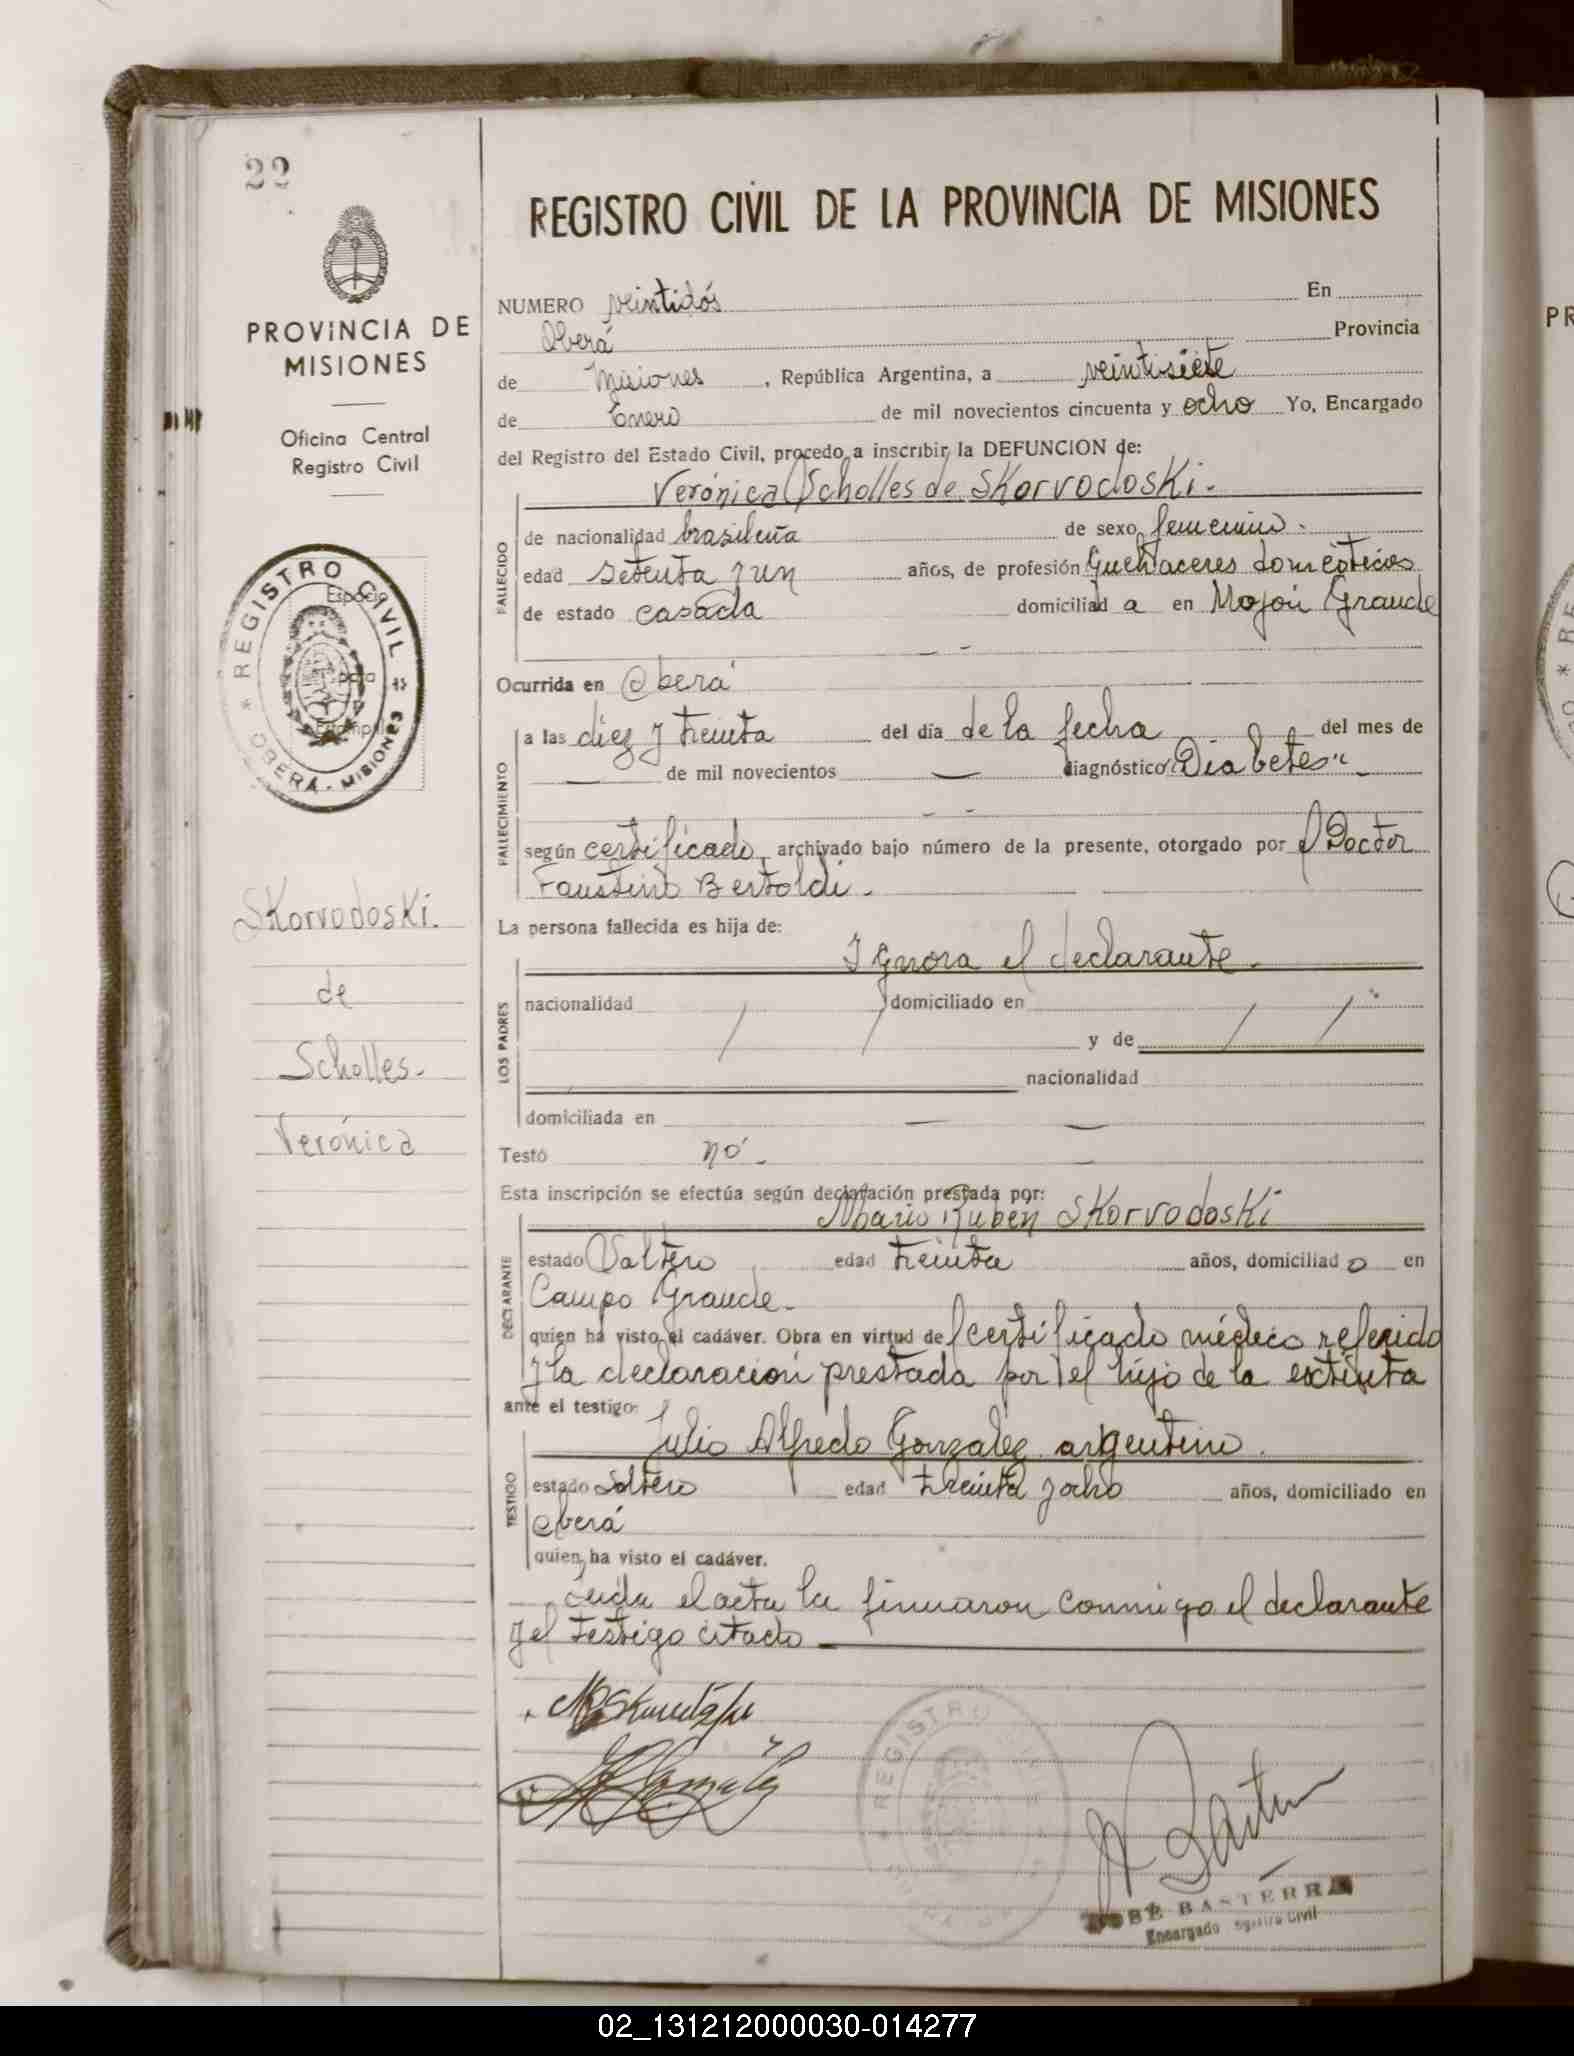 22
PROVINCIA DE
MISIONES
Oficina Central
Registro Civil
* REGISTRO CIVIL *
OBERÁ - MISIONES
Espacio
para
Estampilla
Skorvodoski.
de
Scholles.
Verónica
REGISTRO CIVIL DE LA PROVINCIA DE MISIONES
NUMERO veintidós En
Oberá Provincia
de Misiones, República Argentina, a veintisiete
de Enero de mil novecientos cincuenta y ocho Yo, Encargado
del Registro del Estado Civil, procedo a inscribir la DEFUNCION de:
Verónica Scholles de Skorvodoski.
FALLECIDO
de nacionalidad brasileña de sexo femenino.
edad setenta y un años, de profesión Quehaceres domésticos
de estado casada domiciliad a en Mojón Grande
Ocurrida en Oberá
FALLECIMIENTO
a las diez y treinta del día de la fecha del mes de
— de mil novecientos — diagnóstico "Diabetes"
según certificado, archivado bajo número de la presente, otorgado por el Doctor
Faustino Bertoldi.
La persona fallecida es hija de:
LOS PADRES
Ignora el declarante.
nacionalidad domiciliado en
y de
nacionalidad
domiciliada en
Testó no.
Esta inscripción se efectúa según declaración prestada por:
DECLARANTE
Mario Rubén Skorvodoski
estado Soltero edad treinta años, domiciliad o en
Campo Grande.
quien ha visto el cadáver. Obra en virtud del certificado médico referido
y la declaración prestada por el hijo de la extinta
ante el testigo:
TESTIGO
Julio Alfredo Gonzalez argentino.
estado soltero edad treinta y ocho años, domiciliado en
Oberá
quien ha visto el cadáver.
Leída el acta la firmaron conmigo el declarante
y el testigo citado
JOSÉ BASTERRA
Encargado Registro Civil
02_131212000030-014277